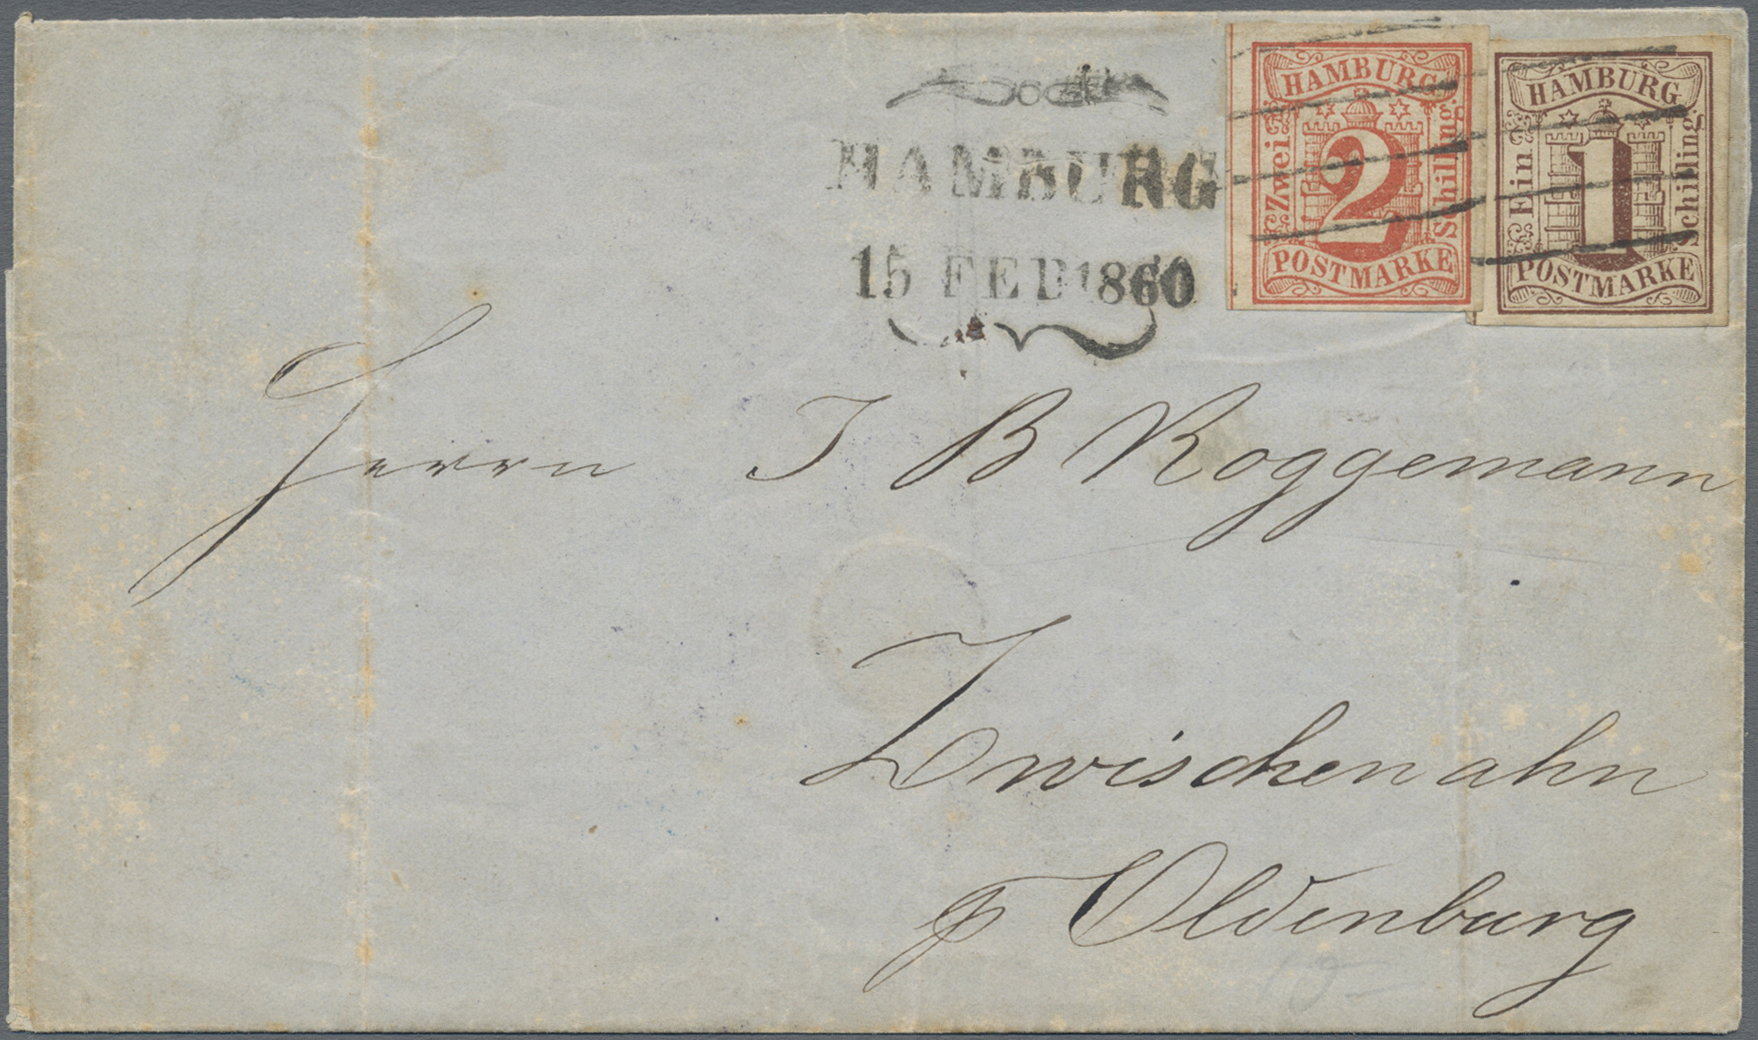 HAMBURG
15 FEB 1860
HAMBURG
Zwei
2
Schilling.
POSTMARKE
HAMBURG
Ein
1
Schilling
POSTMARKE
Herrn J B Roggemann
Zwischenahn
p Oldenburg